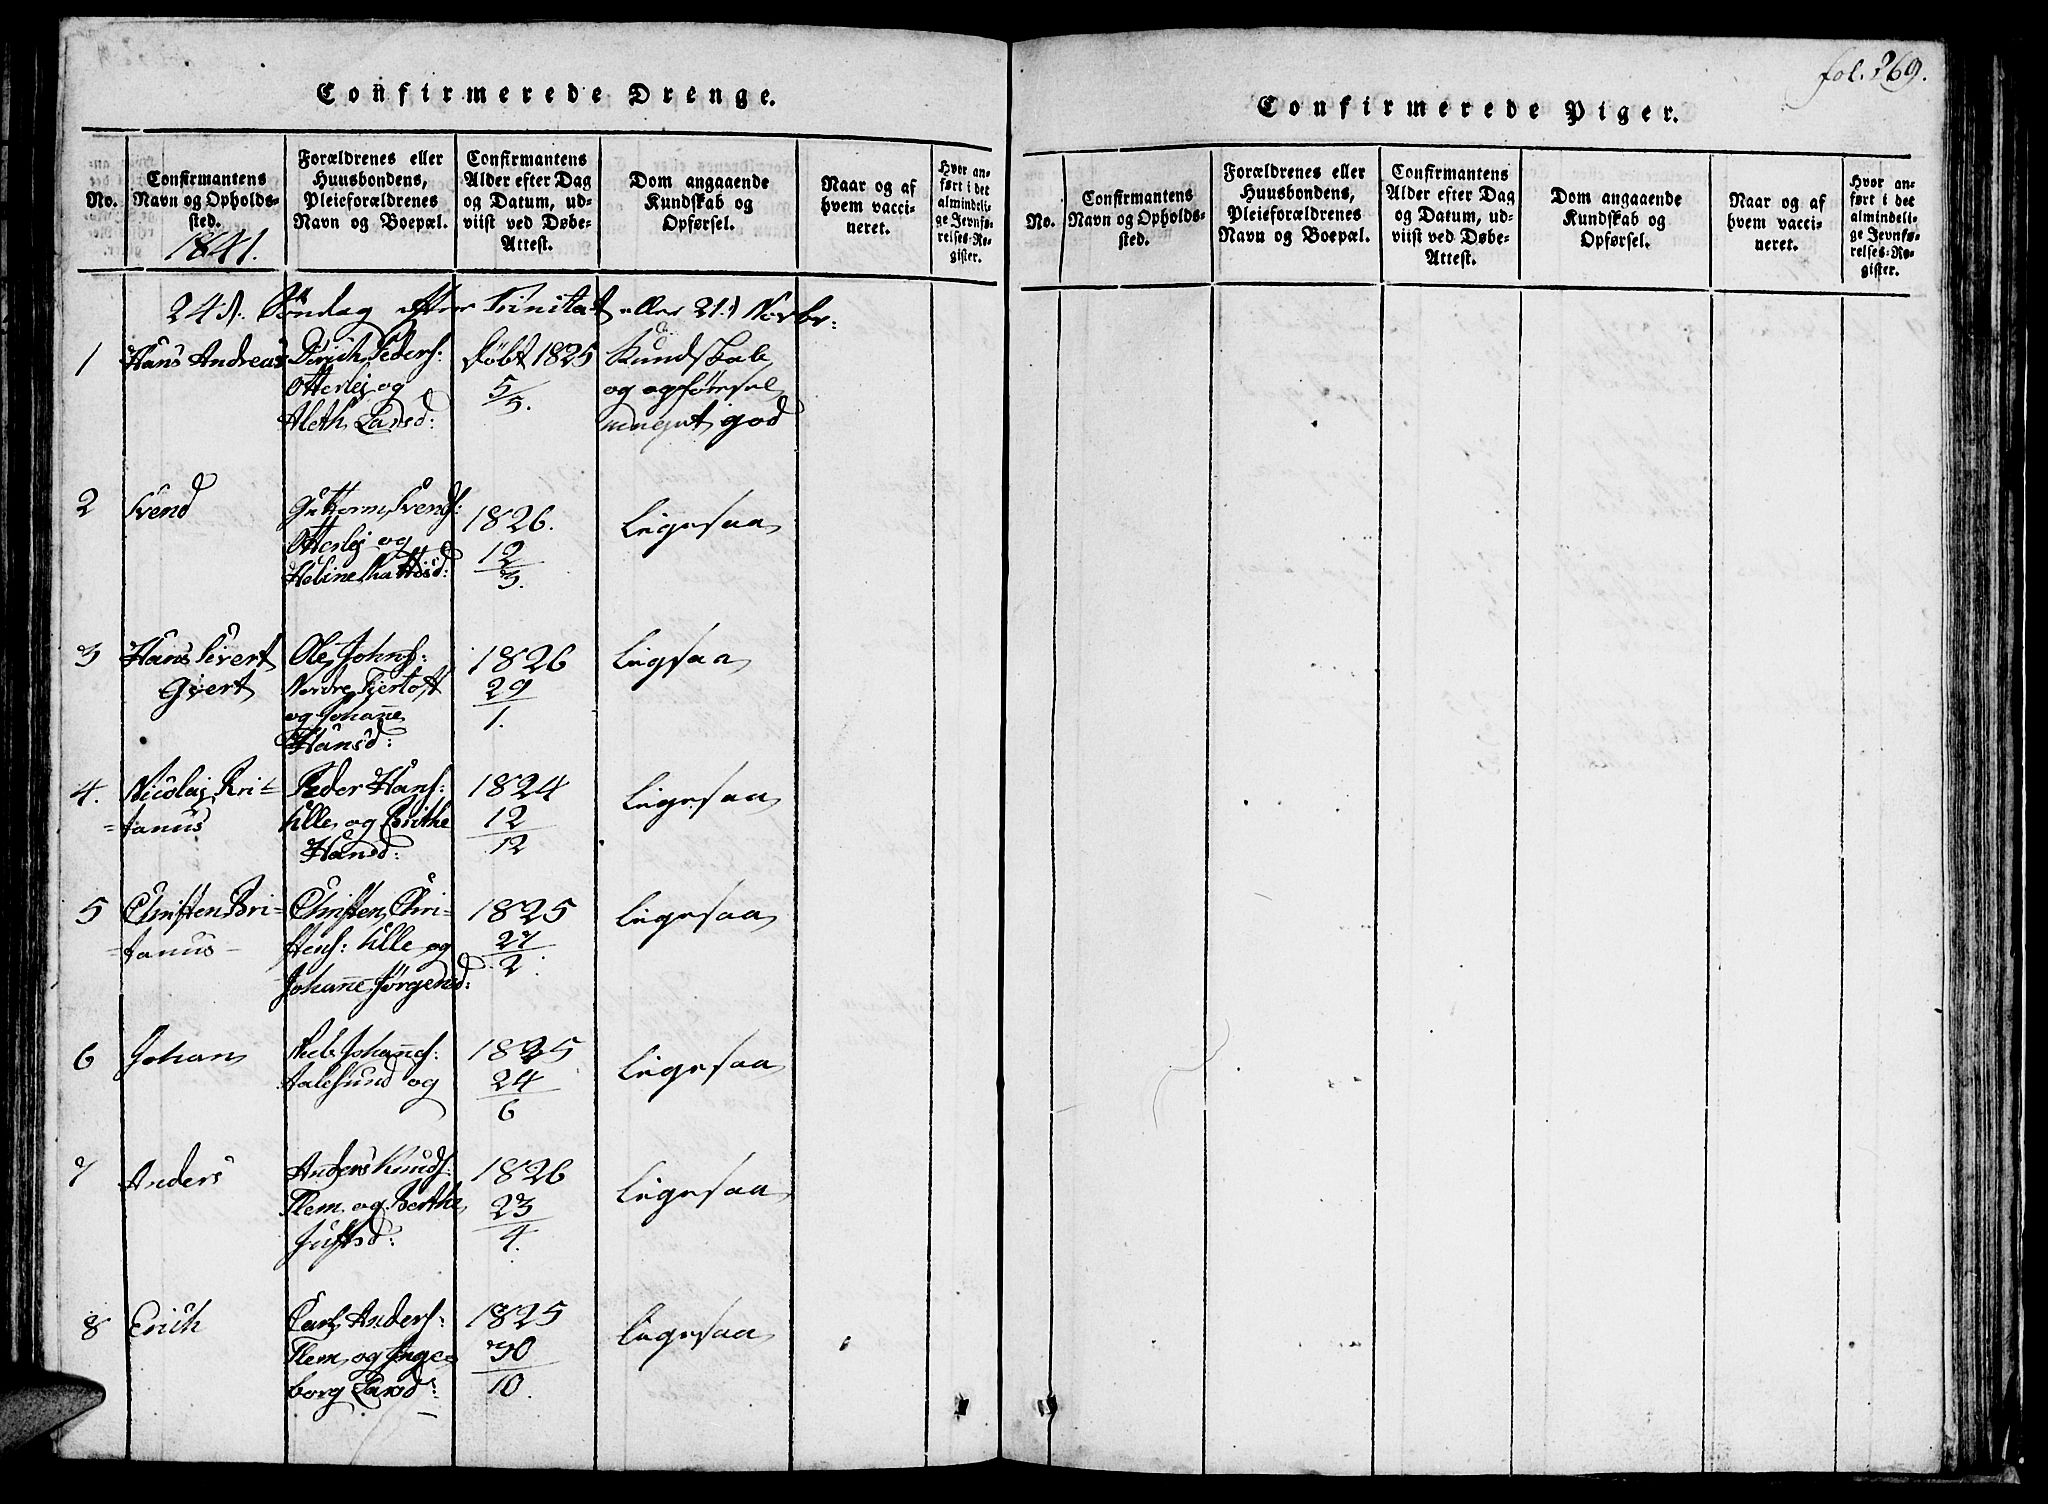 Confirmerede Drenge.
No.
Confirmantens
Navn og Opholds-
sted.
1841.
Forældrenes eller
Huusbondens,
Pleieforældrenes
Navn og Boepæl.
Confirmantens
Alder efter Dag
og Datum, ud-
viist ved Døbe-
Attest.
Dom angaaende
Kundskab og
Opførsel.
Naar og af
hvem vacci-
neret.
Hvor an-
ført i det
almindeli-
ge Jevnfø-
relses-Re-
gister.
24d. Søndag efter Trinitat eller 21d Novbr:
1
Hans Andreas
Dirich Peders:
Otterlej og
Aleth Larsd:
døbt 1825
5/5.
Kundskab
og opførsel
meget god
2
Svend
Guttorm Svends:
Otterlej og
1826.
12/3.
Ligesaa
3
Hans Sivert
Gvert
Ole Johns:
Nordre Fjertoft
og Johanne
Hansd:
1826
29/1.
Ligsaa
4.
Nicolaj Kri=
=tanus
Peder Hans:
Ulle og Brithe
Hansd:
1824
12/12
Ligesaa
5
Christen Bri=
=tanus
Christen Chri-
stens: Ulle og
Johanne Jørgensd:
1825
27/2.
Ligesaa
6
Johan
Johans:
Aalesund og
1825
24/6
Ligesaa
7
Anders
Anders Knuds:
Flem og Berthe
Justsd:
1826
23/4.
Ligesaa
8
Erich
Carl Anders:
Flem og Inge=
borg Larsd:
1825
30/10.
Ligesaa
fol. 269.
Confirmerede Piger.
No.
Confirmantens
Navn og Opholds-
sted.
Forældrenes eller
Huusbondens,
Pleieforældrenes
Navn og Boepæl.
Confirmantens
Alder efter Dag
og Datum, ud-
viist ved Døbe-
Attest.
Dom angaaende
Kundskab og
Opførsel.
Naar og af
hvem vacci-
neret.
Hvor an-
ført i det
almindeli-
ge Jevnfø-
relses-Re-
gister.